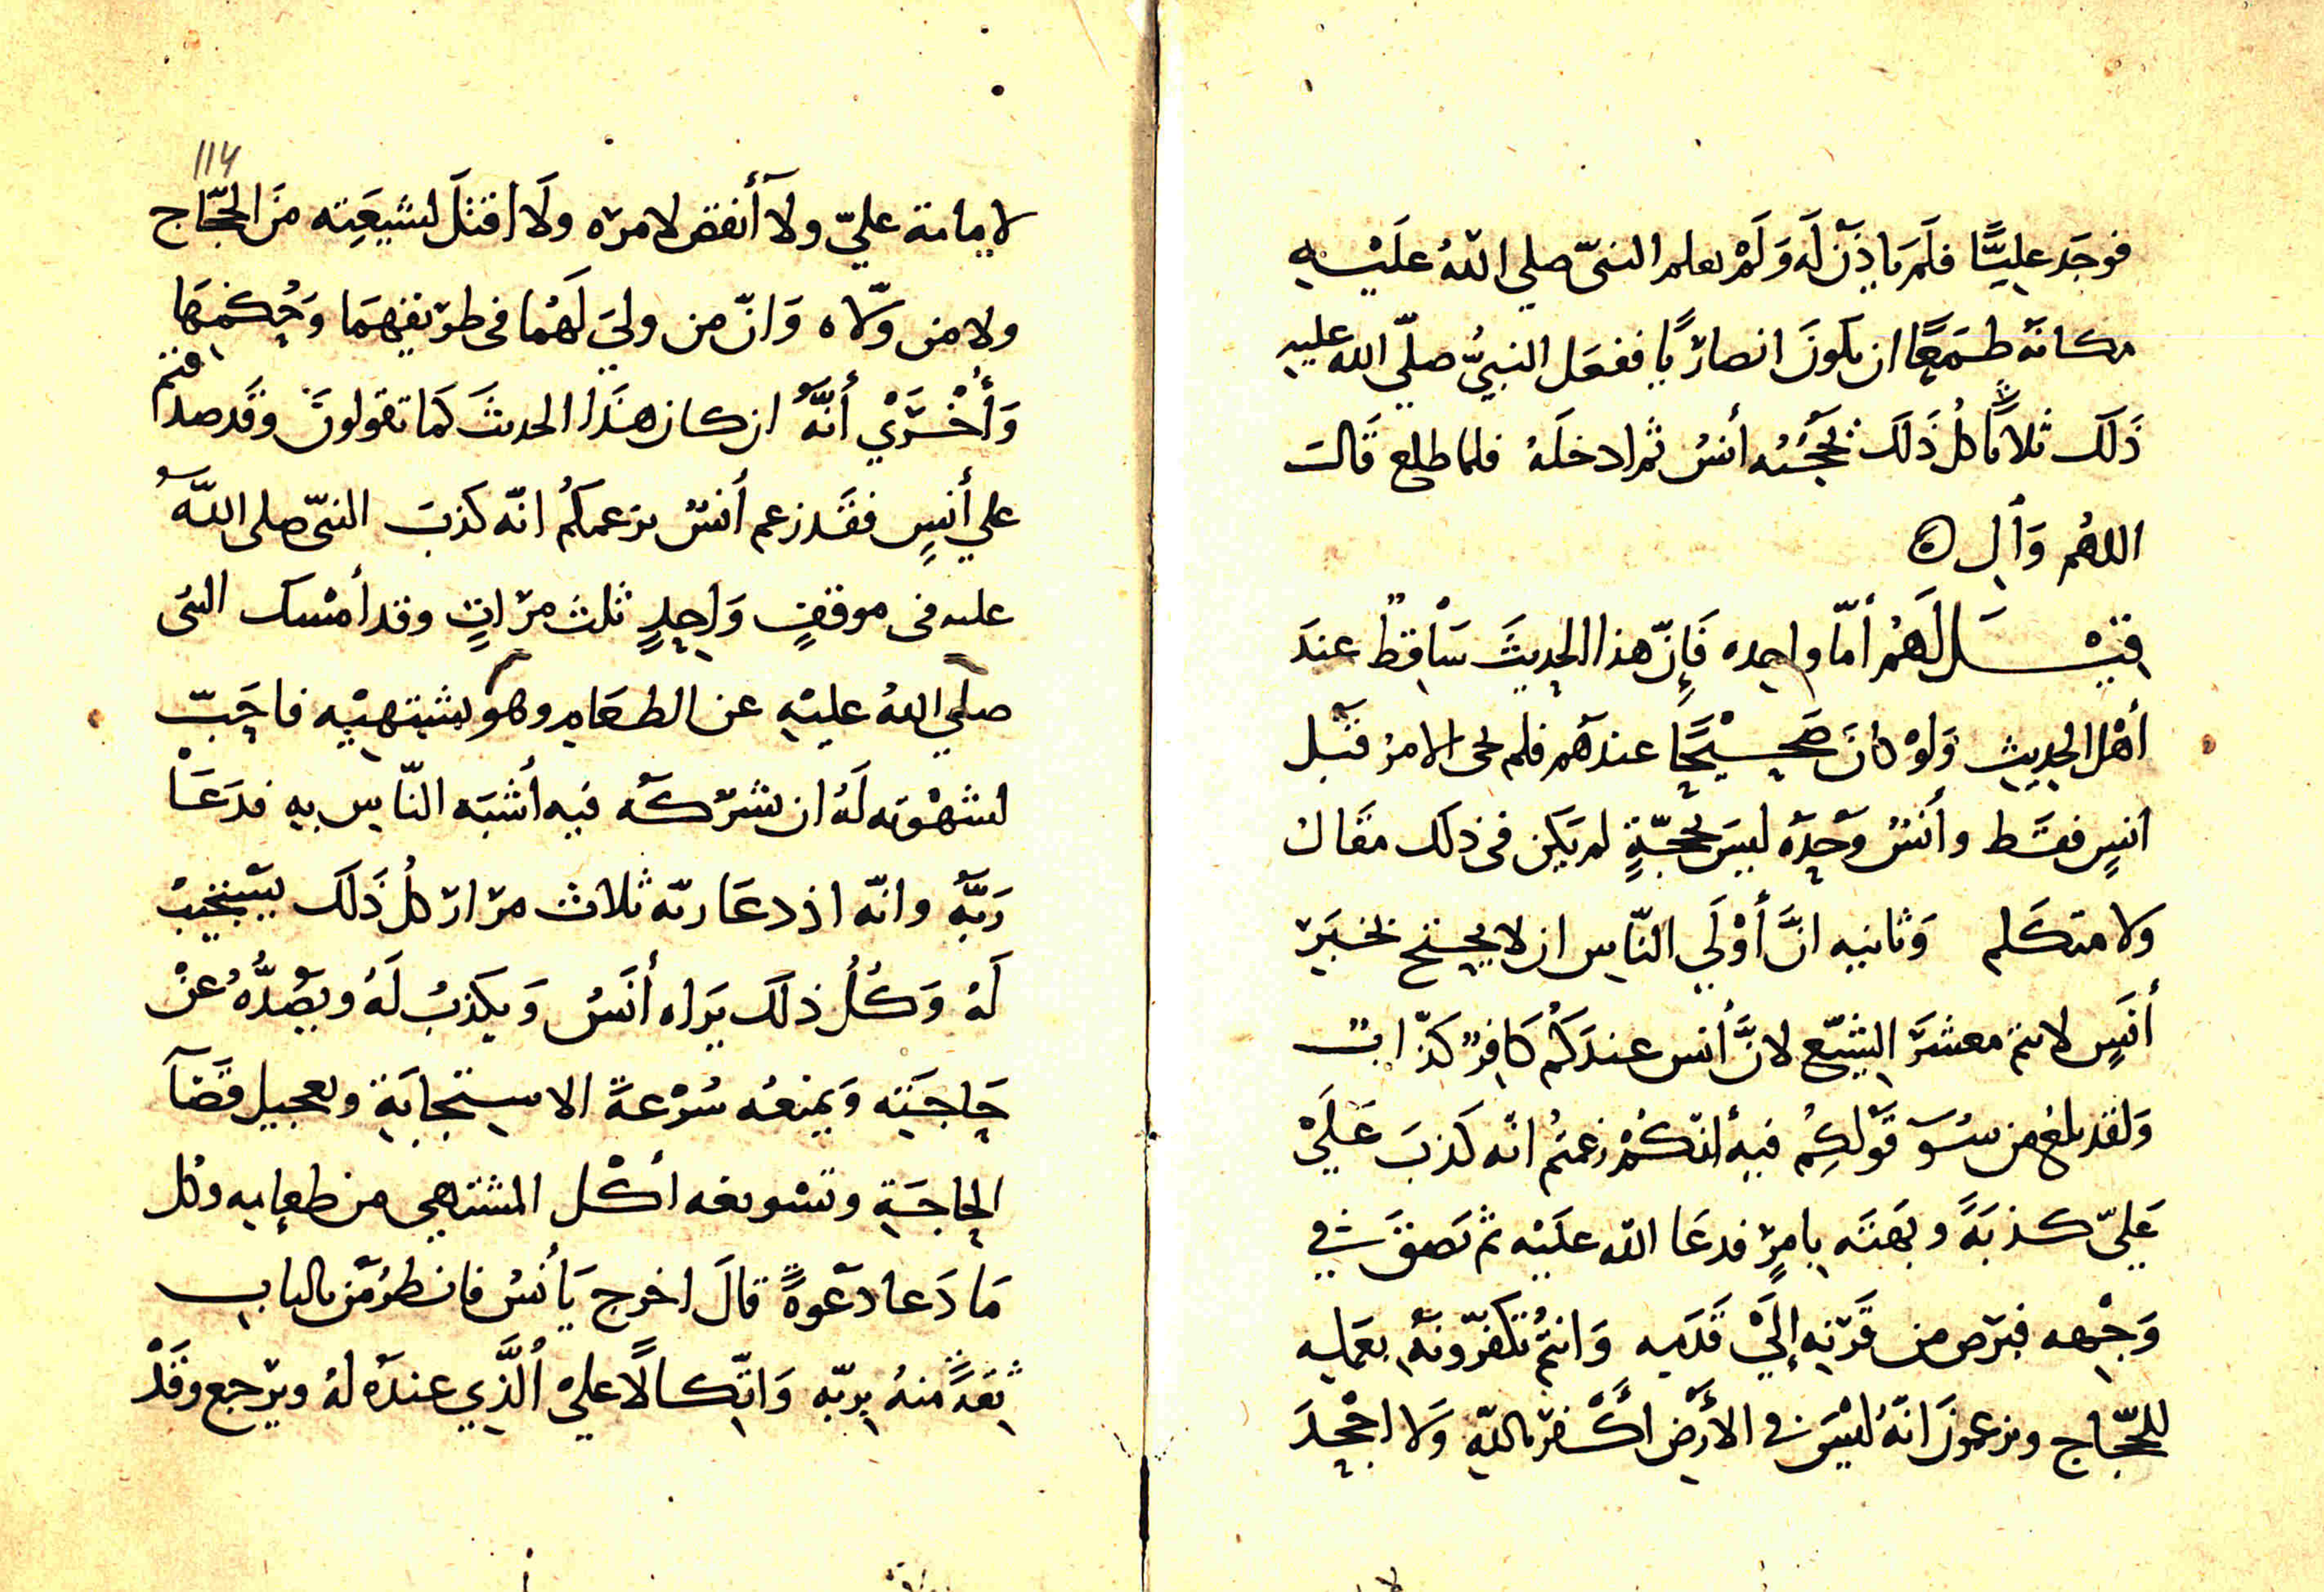 فوجَد عليًّا فلم ياذن لَه وَلَمْ يعلم النبيّ صلي اللّهُ علَيْه
مكانهُ طمَعًا ان يكونَ انصاريًا ففعَل النبيُّ صلّي الله عليه
ذَلكَ ثلاثًا كلُ ذَلك يحجبُه أنسُ ثم ادخلَهُ فلما طلع قالت
اللهُم وَالِ
قيْل لَهَمُ أمّا واحِده فَإِنّ هذا الحدِيثَ سَاقِطٌ عندَ
أهْل الحدِيثِ وَلوْ كانَ صَحِيْحًا عندهم فلم يجئ الامرُ قبل
انسٍ فقَط وأنسُ وَحْدَه ليسَ بحجّةٍ لم يكن في ذلك مقَال
ولا متكلم وَثانيه انَّ أوْلَي النّاس ان لا يحتج بخبَر
أنَسٍ لانتم معشَرَ الشِيَع لانَّ أنس عندَكُم كَافِرٌ كذّابٌ
وَلقد بلغ من سُوَ قَولِكُم فيهِ انّكُمْ زعمتُم انه كَذبَ عَلَيْ
عَلِيّ كذبَةً وبَهتَه بامرٍ فدعَا اللّه علَيْه ثم بَصقَ في
وَجْهِه فبرَص من قَرْنِهِ إلَيْ قَدَمِه وَانتُم تُكفّرونَهُ بعَمَلِه
للحجّاج وتزعمونَ انّهُ ليْسَ في الأَرْضِ اكْفر باللّهِ وَلا احْجد
لاِمامة عليّ ولا أنقض لامرِه ولَا اقتلَ لشيعَتِه منَ الحجّاج
ولا من ولّاه وَانّ من وليَ لَهُما في طريقِهِمَا وَحُكمِهَا
وَأُخْرَيْ أنَّهُ ان كان هَذَا الحديثَ كمَا تقولونَ وقَد صدقتم
علي أنسٍ فقَد زعم أنسُ بزعمكُم انّه كَذبَ النبيّ صلى اللّهُ
عليه في موقفٍ وَاحِدٍ ثلث مرّاتٍ وقد أمْسك النبي
صلي اللهُ عليْهِ عن الطعَامِ وهو يشتهِيْه فاحَبّ
لشهْوته لَهُ ان يشركَه فيه أشبَه النّاسِ بِهِ فدَعَا
رَبَّهُ وانّه اذ دعَا ربّه ثلاث مرَارٍ كلُ ذَلكَ يسْتَجِيبُ
لَهُ وَكُلُ ذلكَ يَراه أنَسُ وَيكذبُ لَهُ ويَصُدُّهُ عنْ
حَاجَتِه وَيمنعُه سُرْعةَ الاستجَابَةِ وتعجيل قَضَآ
الحاجَةِ وتسْويغه أكْل المشتهي من طعامِه وكل
مَا دَعا دَعوةً قالَ اخرج يَا أنسُ فانظُر مَن بالباب
ثِقةً منهُ بِربّه وَاتّكالًا عليْ الَّذِي عندَه لهُ ويرْجع وقَدْ